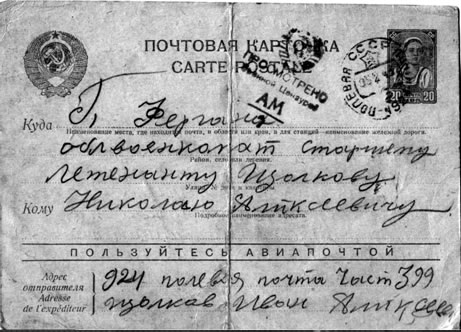 ПОЧТОВАЯ КАРТОЧКА
CARTE POSTALE
ПРОСМОТРЕНО
Военной Цензурой
АМ
СССР
ПОЛЕВАЯ
20 20
Куда Г Фергана
Наименование места, где находится почта, и области или края, а для станций—наименование железной дороги.
облвоенкомат старшему
Район, село или деревня.
летенанту Щолкову
Кому Николаю Алксеевичу
Подробное наименование адресата.
ПОЛЬЗУЙТЕСЬ АВИАПОЧТОЙ
Адрес отправителя
Adresse de l'expéditeur
924 полевая почта Част 399
Щолков Иван Алксее